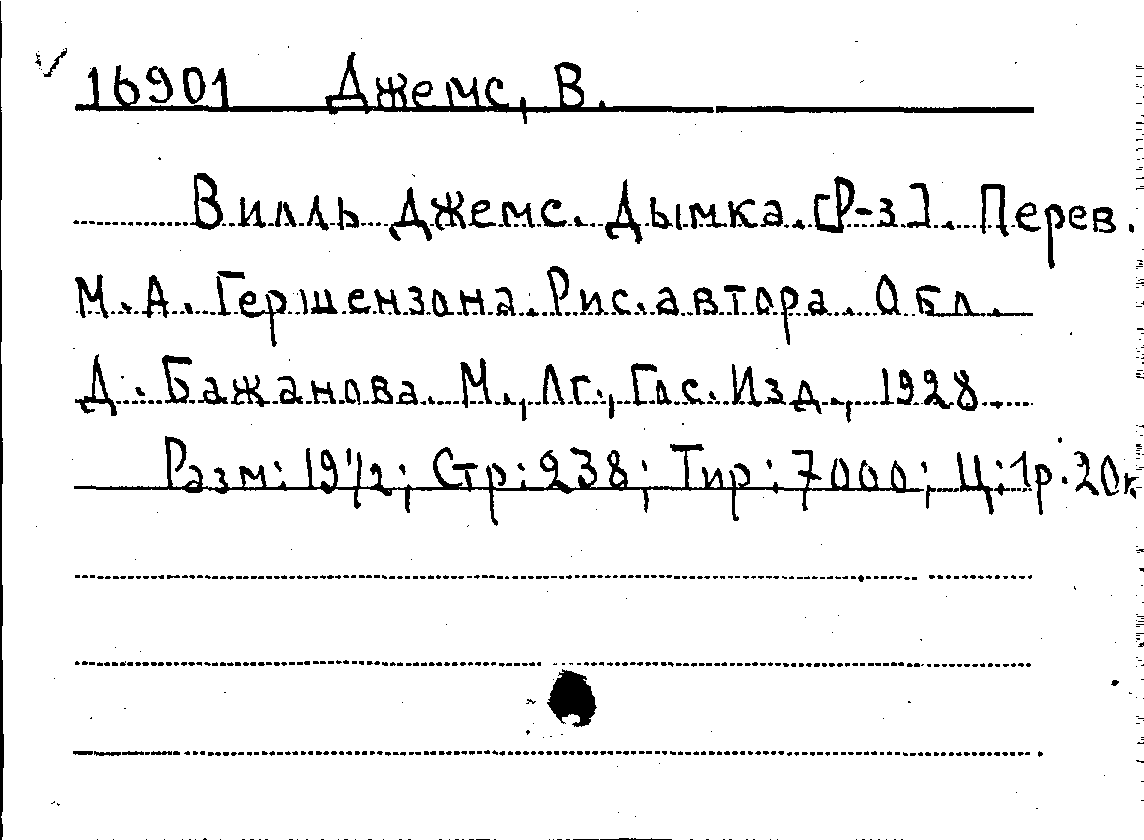 16901 Джемс, В.
Вилль Джемс. Дымка. [Р-з]. Перев.
М.А. Гершензона. Рис. автора. Обл.
Д. Бажанова. М., Лг., Гос. Изд., 1928.
Разм: 19 1/2; Стр: 238; Тир: 7000; Ц: 1р. 20к